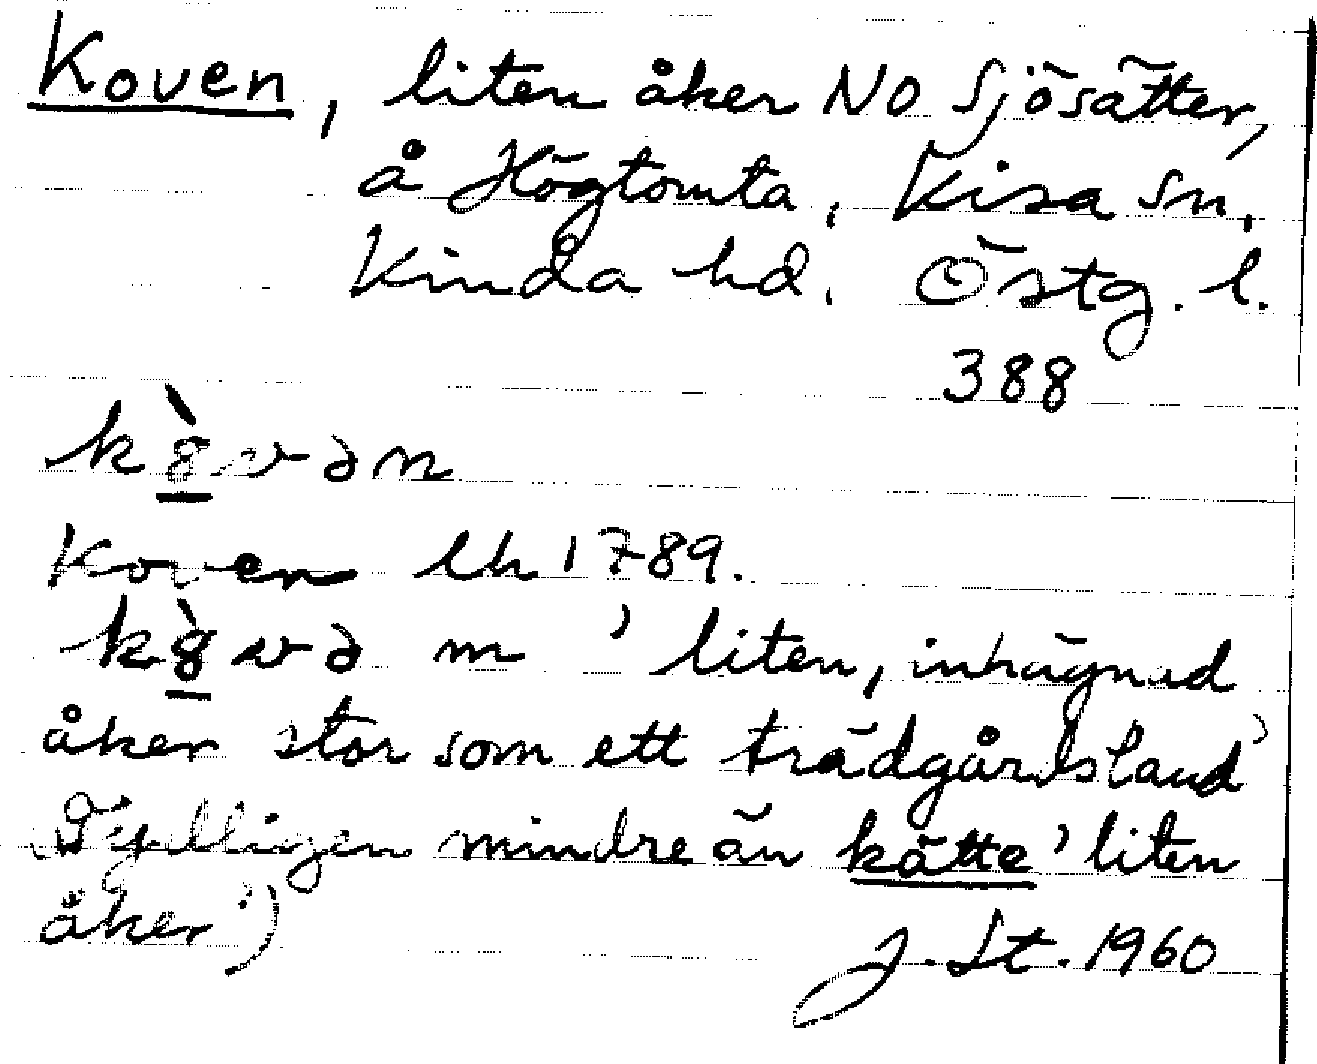 Koven, liten åker NO Sjösätter,
å Högtomta, Kisa sn,
Kinda hd. Östg. l.
388
kò̱vən
Koven lh 1789.
kò̱və m 'liten, inhägnad
åker stor som ett trädgårdsland'
(Tydligen mindre än kätte 'liten
åker')
J. St. 1960